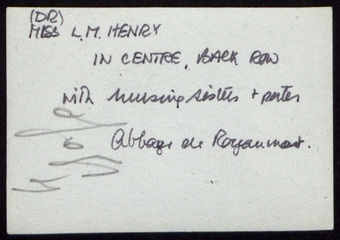 (DR)
MISS L.M. HENRY
IN CENTRE, BACK ROW
with nursing sisters +
Abbaye de Royaumont.